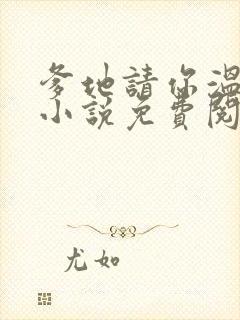 爹地請你溫
小說免費閱
尤如